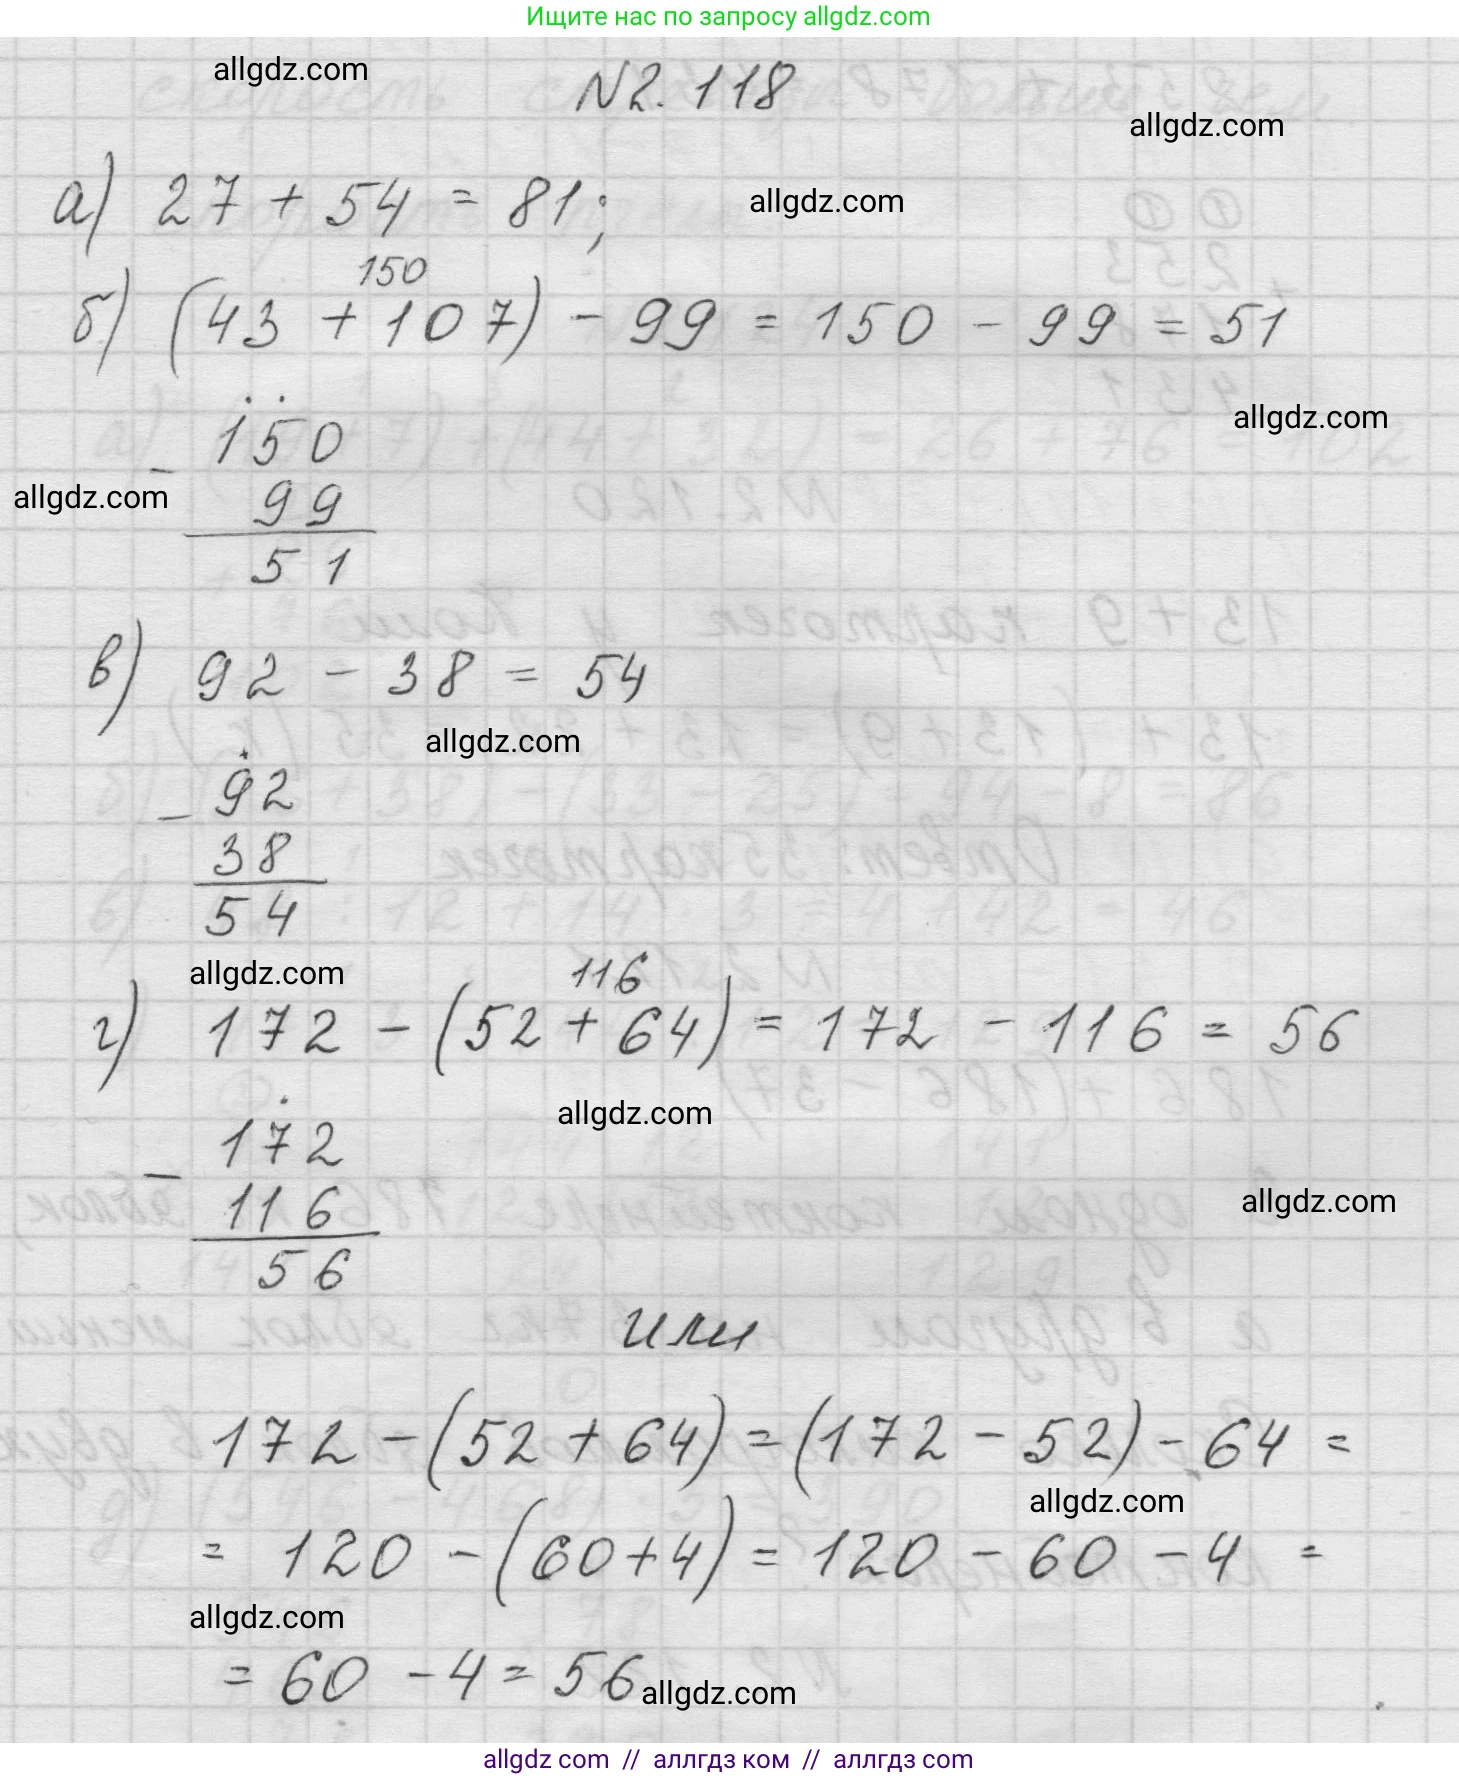 Ищите нас по запросу allgdz.com
allgdz.com
N2.118
allgdz.com
а) 27 + 54 = 81;
allgdz.com
150
б) (43 + 107) - 99 = 150 - 99 = 51
allgdz.com
150
-
allgdz.com
99
51
в) 92 - 38 = 54
allgdz.com
92
-
38
54
allgdz.com
116
г) 172 - (52 + 64) = 172 - 116 = 56
allgdz.com
172
-
116
allgdz.com
56
или
172 - (52 + 64) = (172 - 52) - 64 =
allgdz.com
= 120 - (60 + 4) = 120 - 60 - 4 =
allgdz.com
= 60 - 4 = 56
allgdz.com
allgdz com // аллгдз ком // аллгдз com